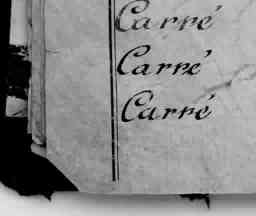 Carré
Carré
Carré